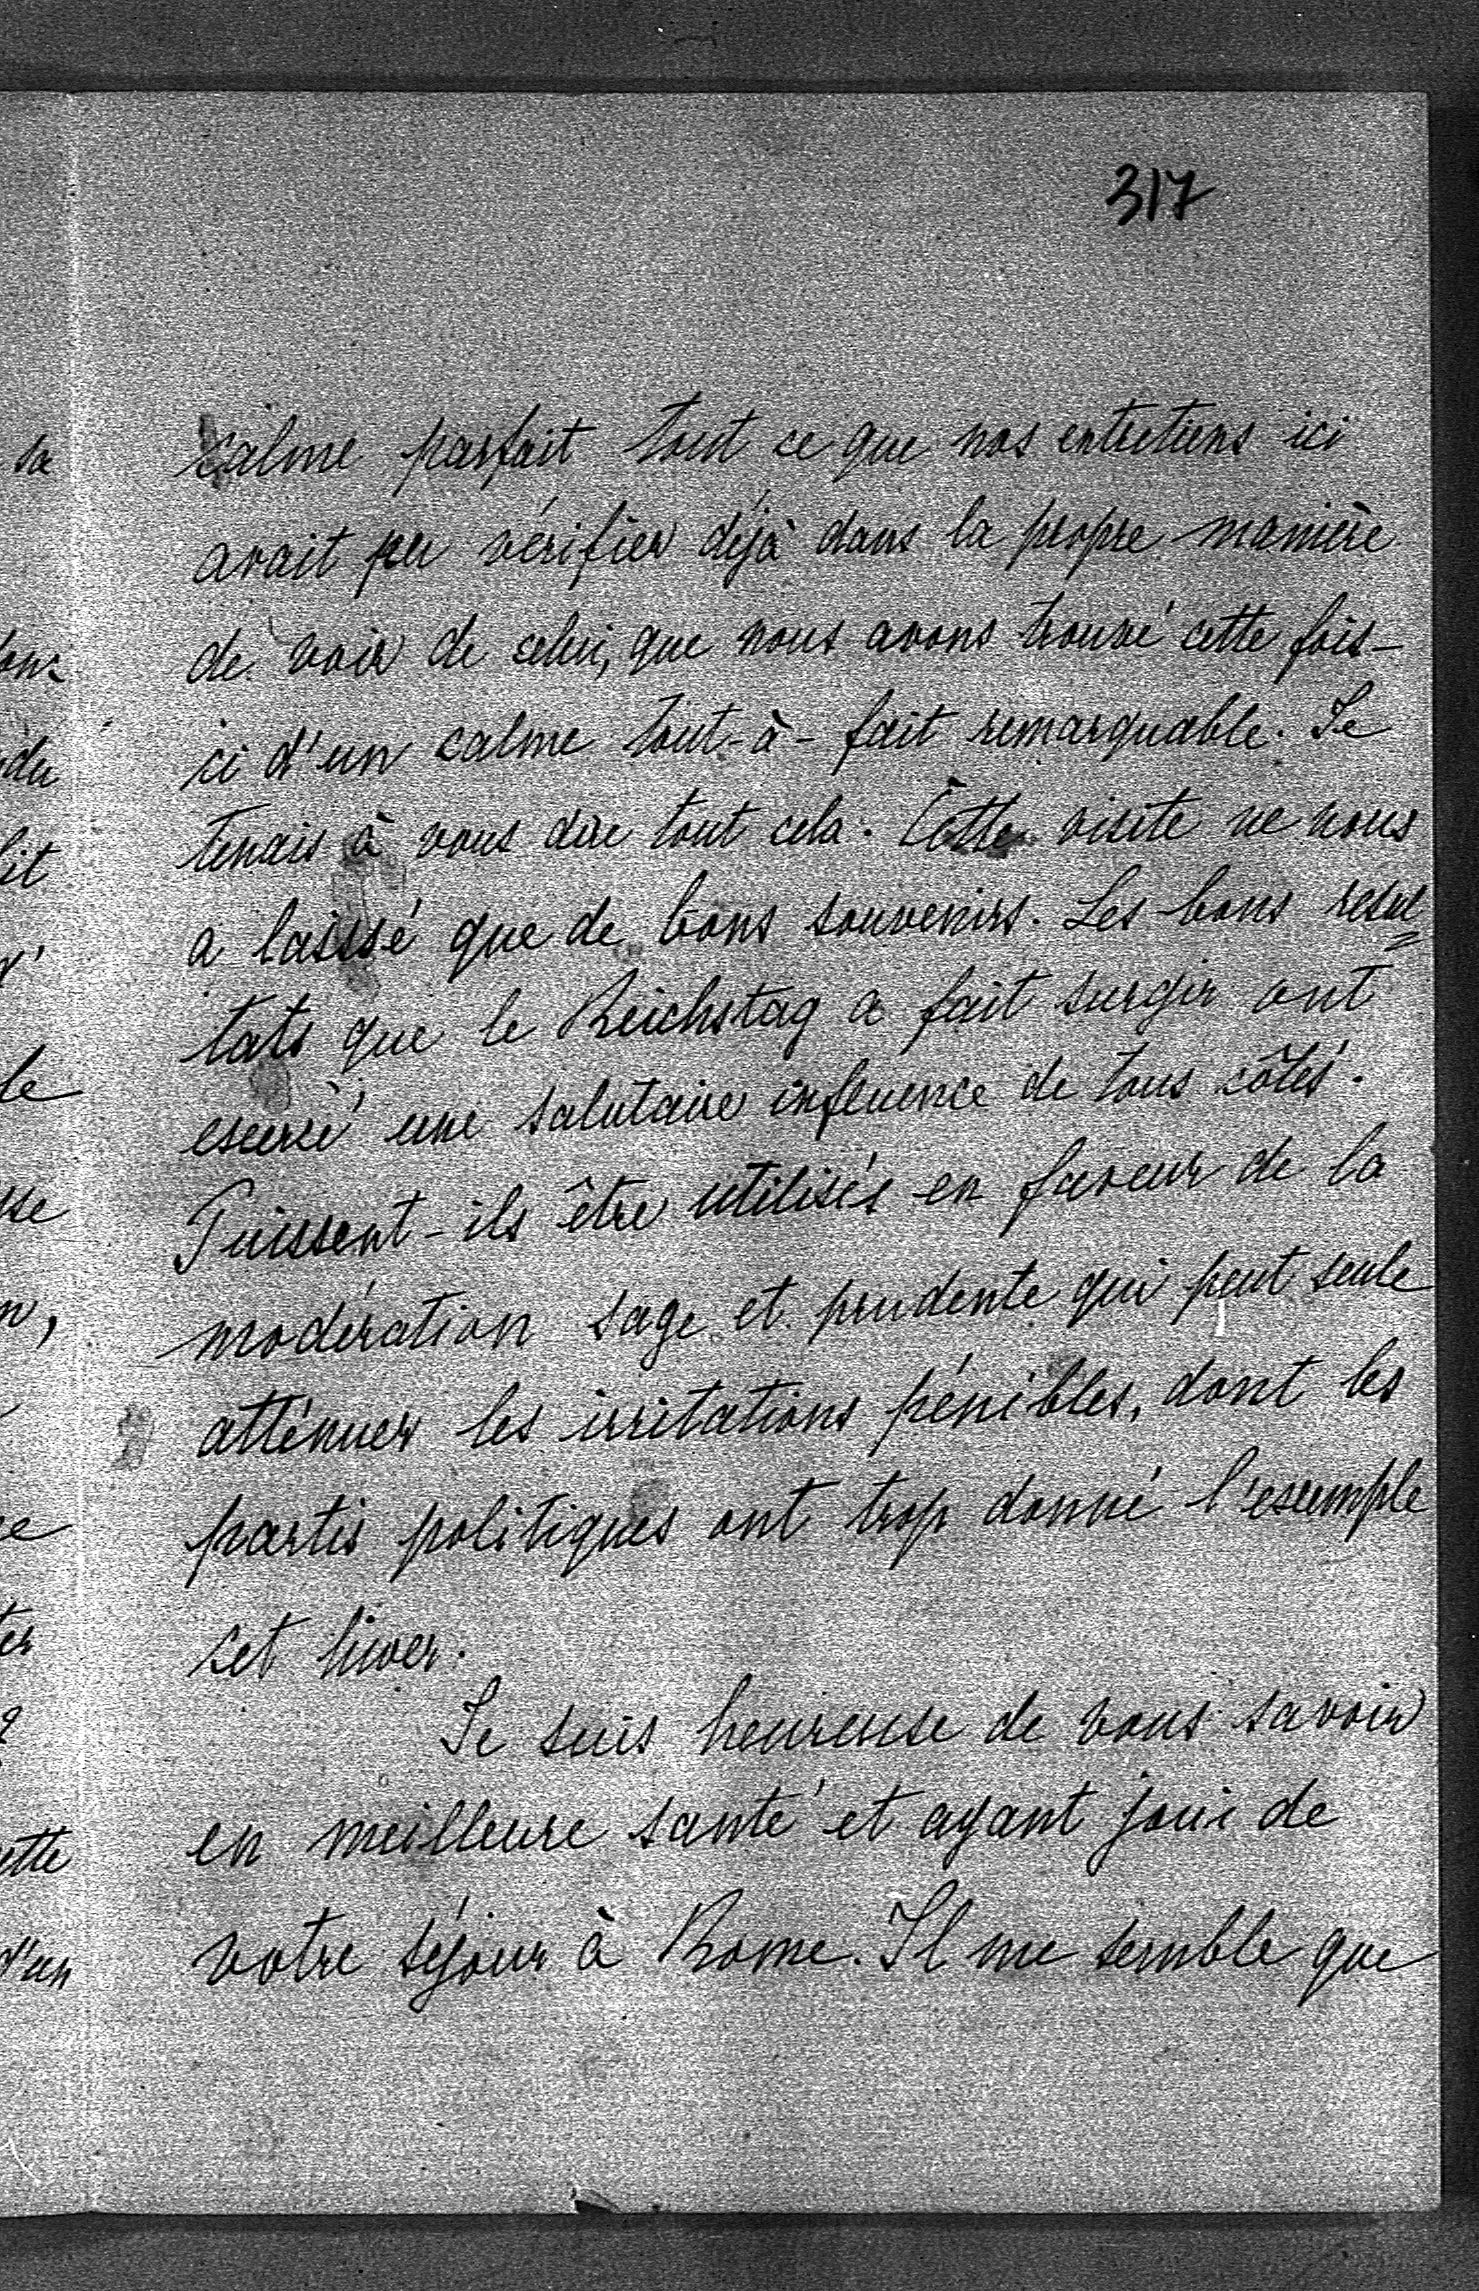 317
calme parfait tout ce que nos entretiens ici
avait pu vérifier déjà dans la propre manière
de voir de celui, que nous avons trouvé cette fois-
ci d'un calme tout-à-fait remarquable. Je
tenais à vous dire tout cela. Cette visite ne nous
a laissé que de bons souvenirs. Les bons resul=
tats que le Reichstag a fait surgir ont
exercé une salutaire influence de tous côtés.
Puissent-ils être utilisés en faveur de la
modération sage et prudente qui peut seule
atténuer les irritations pénibles, dont les
partis politiques ont trop donné l'exemple
cet hiver.
Je suis heureuse de vous savoir
en meilleure santé et ayant joui de
votre séjour à Rome. Il me semble que